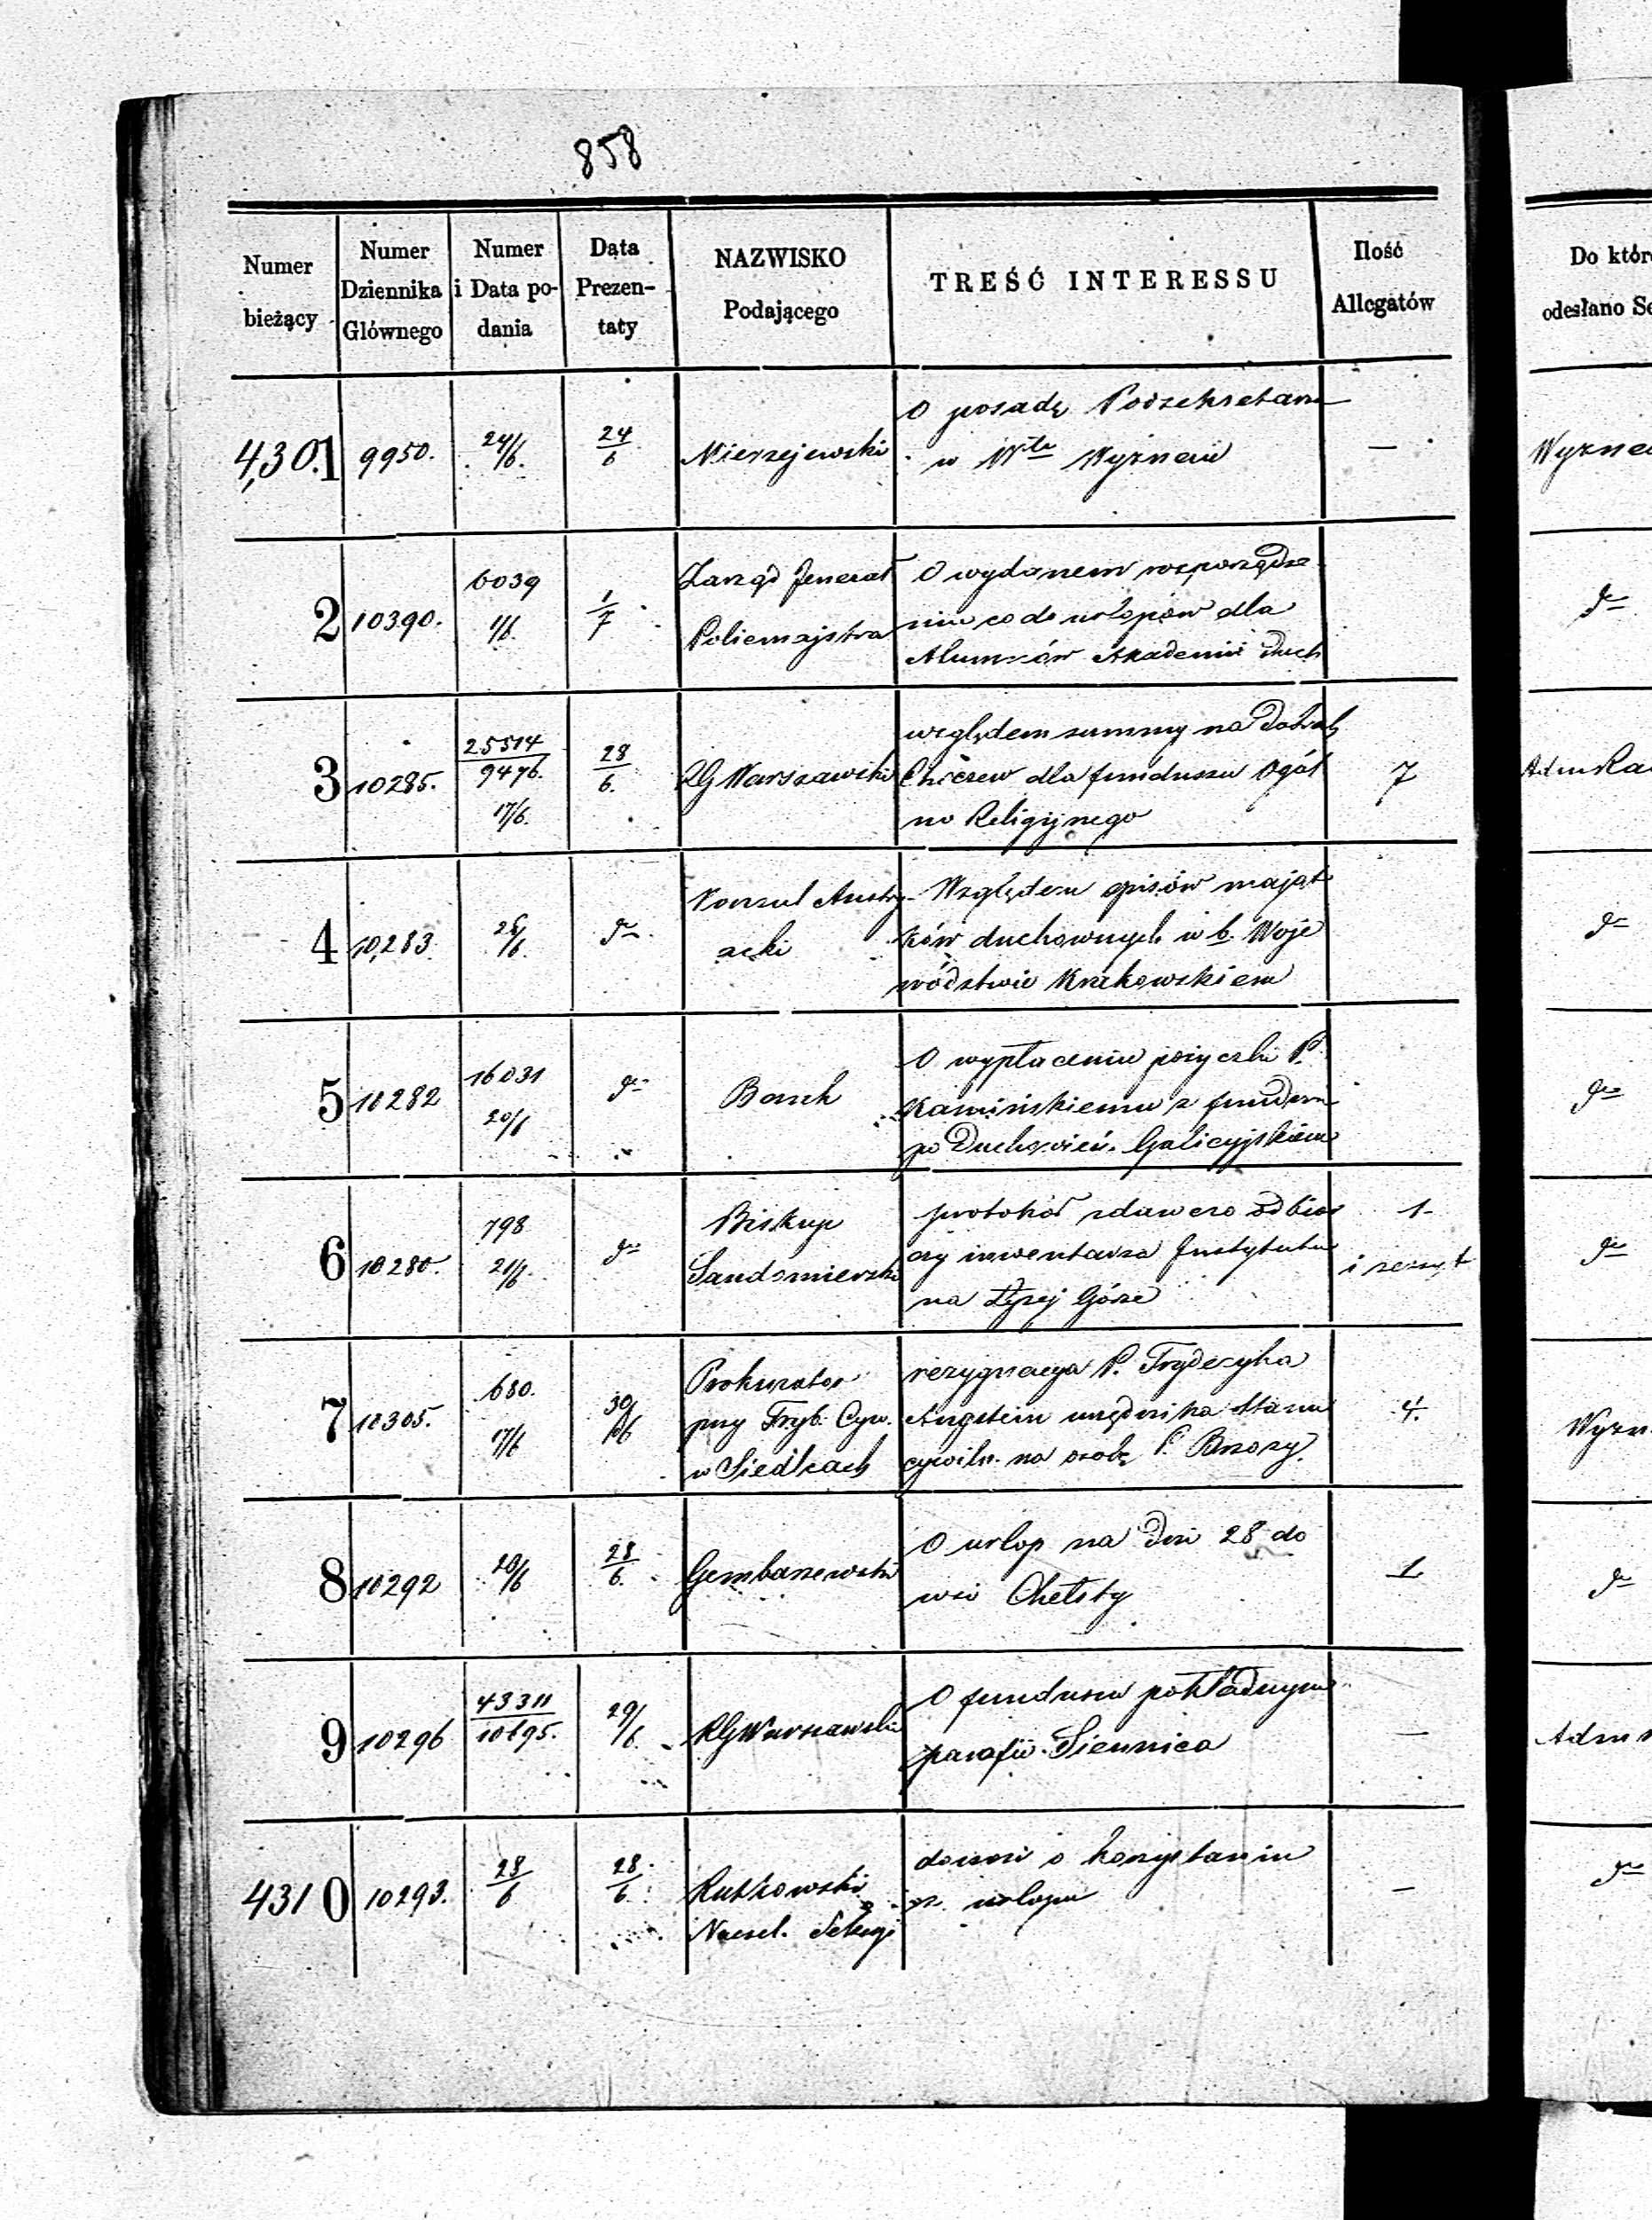 858
Numer bieżący
Numer Dziennika Głównego
Numer i Data podania
Data Prezentaty
NAZWISKO Podającego
TREŚĆ INTERESSU
Ilość Allegatów
Do któr
odesłano Se
4,301 9950. 24/6. 24/6 Mierzejewski
O posadę Podsekretarza
w Wdle Wyznań
—
Wyznań
2 10390. 6039 1/6. 1/7
Zarząd Jenerał
Policmajstra
O wydanem rozporządze
niu co do urlopów dla
Alumnów Akademii Duch
do
3 10285. 25514/9476. 17/6. 28/6. RG Warszawski
względem summy na Dobrach
dla funduszu Ogól
no Religijnego
7
Adm Ra
4 10,283. 28/6. do
Konsul Austry
acki
Względem opisów mająt
ków duchownych w b. Woje
wództwie Krakowskiem
do
5 10282 16031 20/6 do
O wypłacenie pożyczki P.
Kamińskiemu z fundusz
po Duchowień. Galicyjskiem
do
6 10280. 798 21/6. do
Biskup
Sandomierski
protokół zdawczo odbior
czy inwentarza Instytutu
na Łysej Górze
1
i zeszyt
do
7 10305. 680. 17/6 30/6
Prokurator
przy Tryb. Cyw.
w Siedlcach
rezygnacya P. Frydryka
urzędnika Stanu
cywiln. na osobę P. Brzozy.
4.
Wyzn
8 10292 20/6 28/6.
O urlop na Dni 28 do
wsi Chełsty
1
do
9 10296 43311/10695. 29/6. RG Warszawski
O funduszu pokładnym
parafii Siennica
—
Adm
4310 10293. 28/6 28/6.
Rutkowski
Naczel. Sekcyi
donosi o korzystaniu
z urlopu
—
do